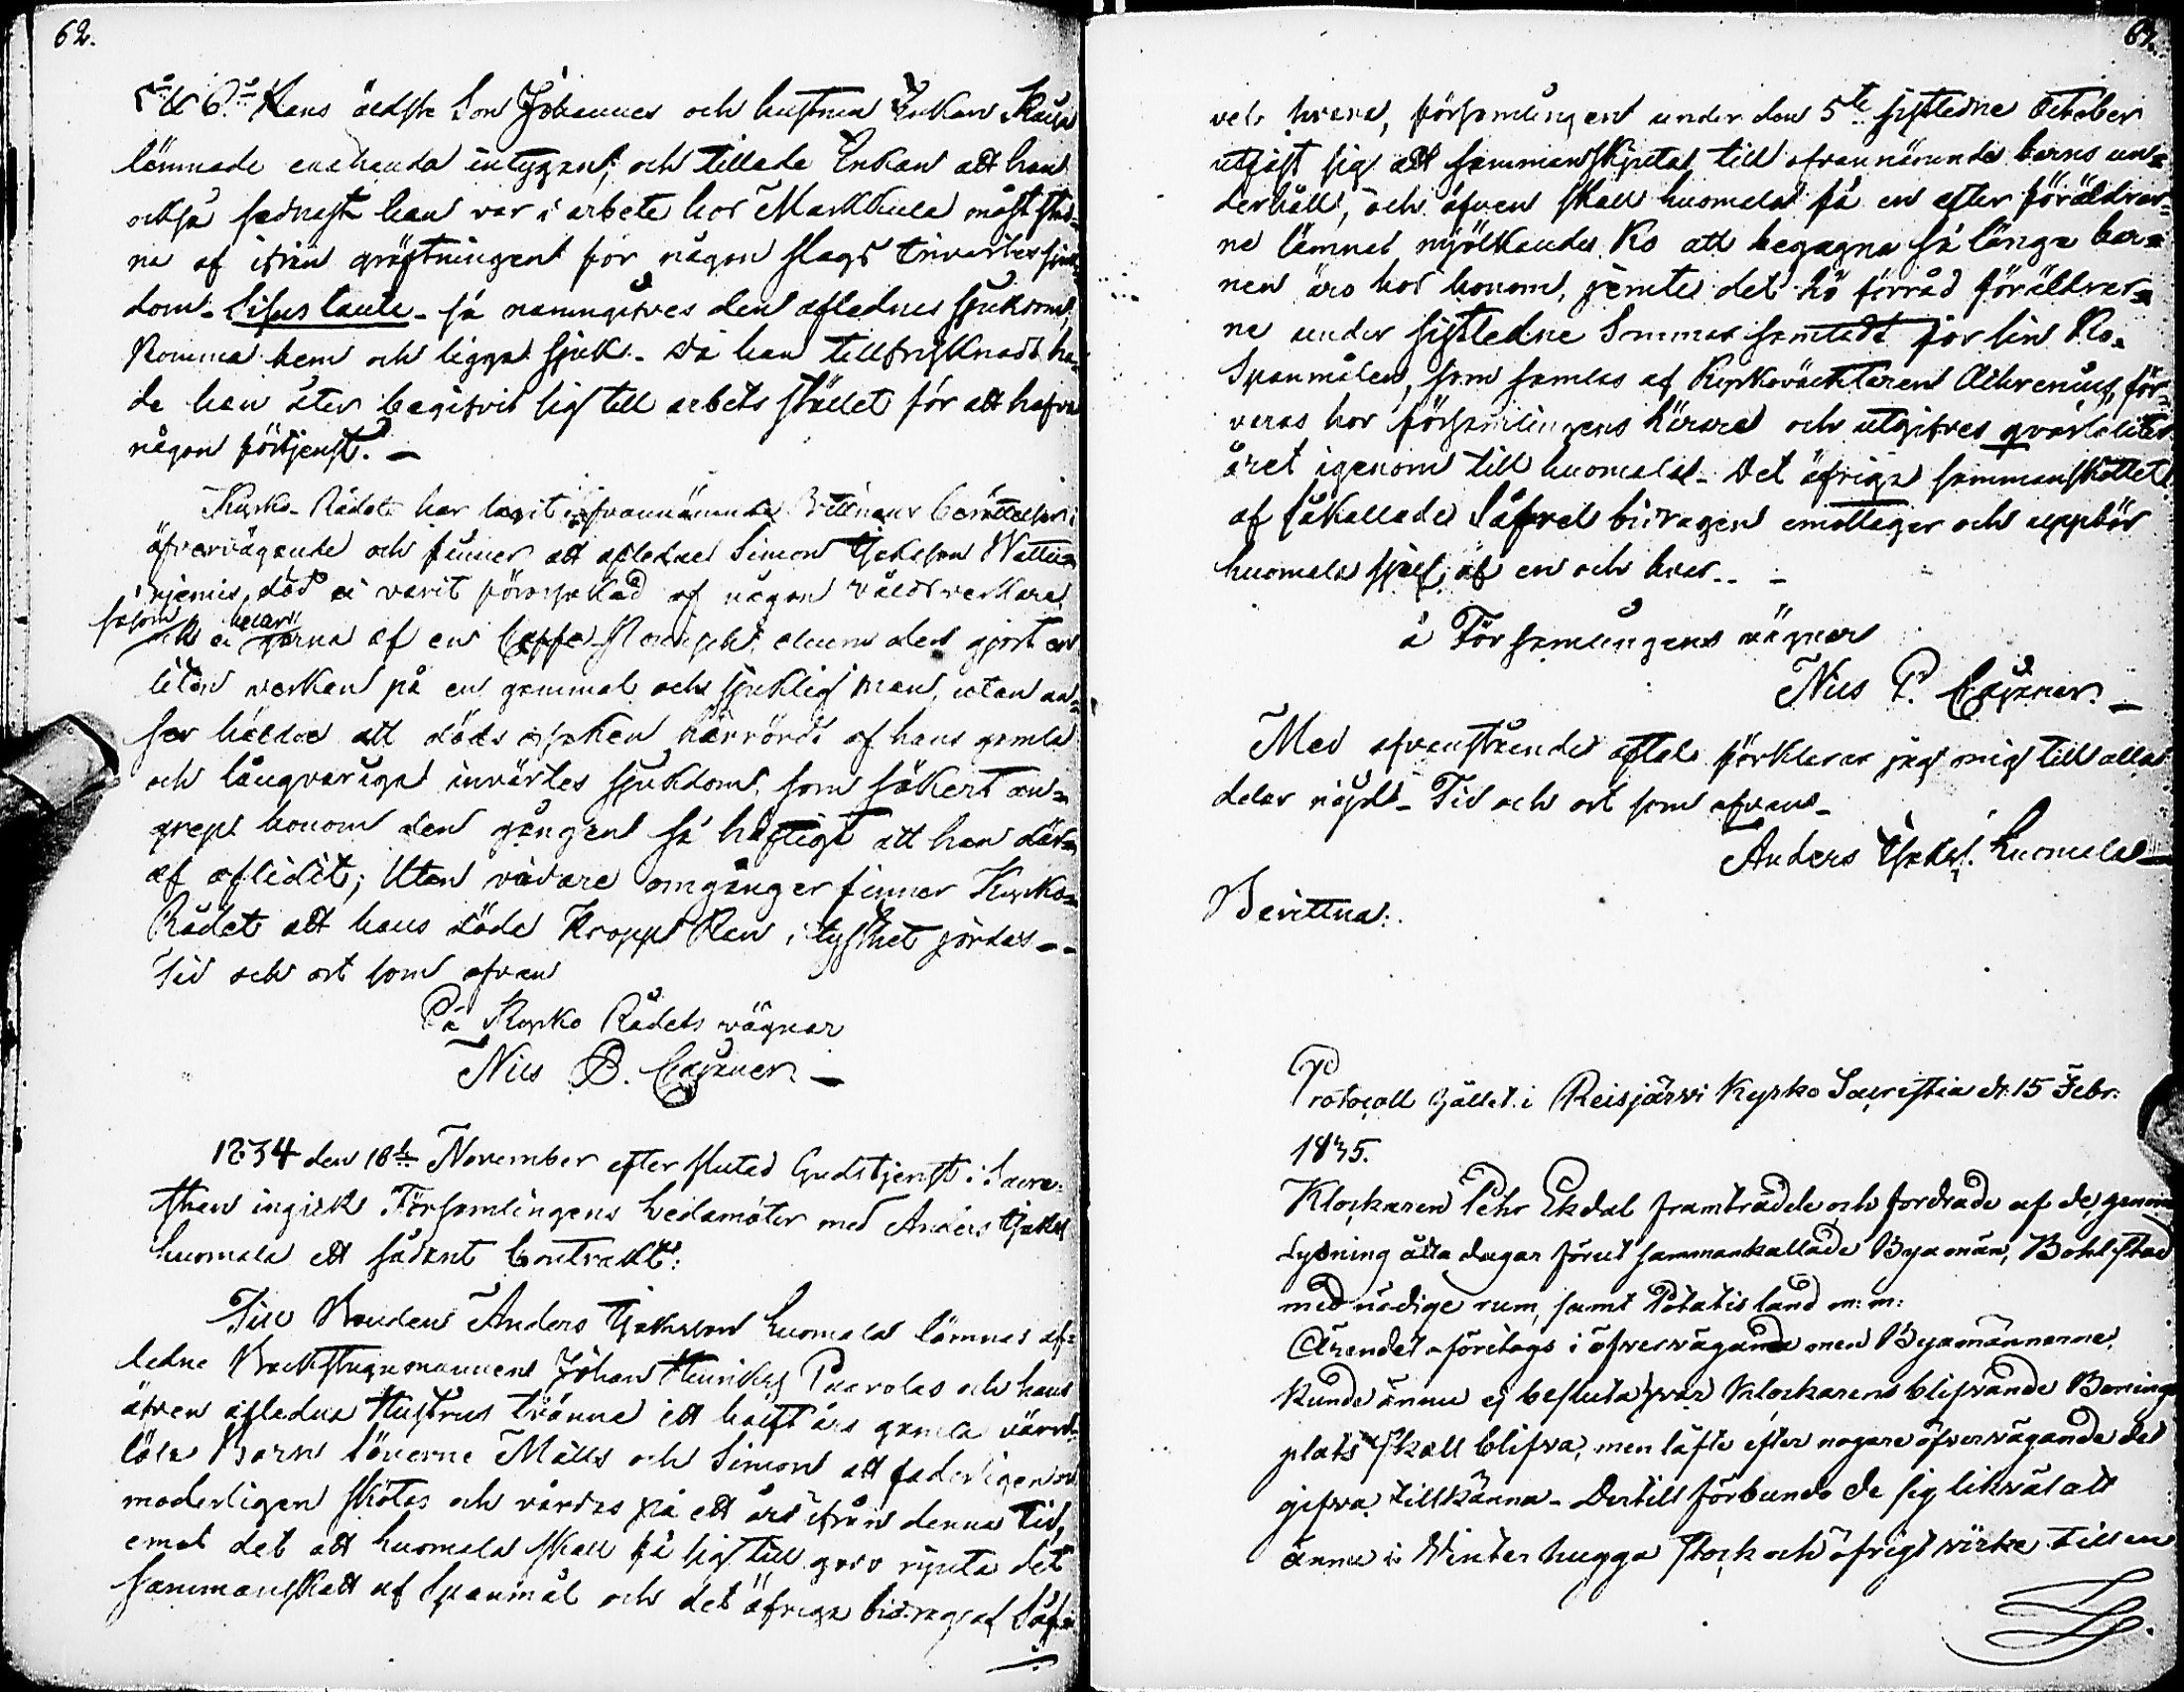 62.
5te & 6te Hans äldste Son Johannes och hustrun Enkan Kaisa
lämnade enahanda intygan, och tillade Enkan att han
också sednast han var i arbete hos Markkula måst stad-
na af ifrån gräftningen för någon slags invärtes sjuk-
dom - Sisus tauti - så namngifves den aflednes sjukdom,
Komma hem och ligga sjuk. - Då han tillfrisknadt ha-
de han åter begifvit sig till arbets stället för att hafva
någon förtjenst. -
Kyrko-Rådet har tagit ofvannämnde Vittnens berättelser i
öfvervägande och finner att afledne Simon Jakobsson Wattu-
niemis död ei varit förorsakad af någon våldsverkare
såsom
och ei heller gerna af en Caffe-
liten verkan på en gammal och sjuklig man, utan an-
ser häldre att döds orsaken härrördt af hans gamla
och långvariga invärtes sjukdom, som säkert an-
grep honom den gången så häftigt att han där-
af aflidit; Utan vidare omgånger finner Kyrko-
Rådet att hans döda Kropp kan i tysthet jordas - -
Tid och ort som ofvan
På Kyrko Rådets vägnar
Nils P. Cajaner. -
1834 den 16de November efter slutad Gudstjenst i Sacri-
stian ingick Församlingens Ledamöter med Anders Jakobs
Luomala ett sådant Contrakt:
Till Bonden Anders Jakobsson Luomala lämnas af-
ledne Backstugumannens Johan Henriks Paavolas och hans
äfven afledna Hustrus tvänne ett halft års gamla värn-
lösa Barn Sönerne Matts och Simon att faderligen och
moderligen skötas och vårdas på ett års ifrån denna tid,
emot det att Luomala skall få sig till godo njuta det
sammanskott af Spanmål och det öfriga bidrag af Såf-
vel hvara, församlingen under den 5te sistledne October
utfäst sig att sammanskjuta till ofvannämnde barns un-
derhåll, och äfven skall Luomala få en efter föräldrar-
ne lämnad mjölkande Ko att begagna så länge bar-
nen äro hos honom, jemte det hö förråd föräldrar-
ne under sistledne Sommar samladt för sin Ko.
Spanmålen, som samlas af Kyrkoväktaren Aihrenius, för-
varas hos församlingens Kärare och utgifves qvartaliter
året igenom till Luomala. Det öfriga sammanskottet
af såkallade Såfvel bidragen emottager och uppbär
Luomala sjelf af en och hvar. . -
å Församlingens vägnar
Nils P. Cajaner. -
Med ofvanstående aftals förklarar jag mig till alla
delar nöjd - Tid och ort som ofvan -
Anders Jakobs: Luomala -
Bevittna:.
Protocoll hållet i Reisjärvi Kyrko Sacristia d: 15 Febr.
1835.
Klockaren Pehr Ekdal framträdde och fordrade af de genom
Lysning åtta dagar förut sammankallade Byamän, Bohlstad
med nödige rum, samt Potatisland m: m:
Ärendet företogs i öfvervägande men Byamännerne
kunde ännu ej besluta hvar Klockarens blifvande Bonings
plats skall blifva, men läfte efter nogare öfvervägande det
gifva tillkänna - Dertill förbundo de sig likväl att
ännu i Winter hugga stock och öfrigt virke till en